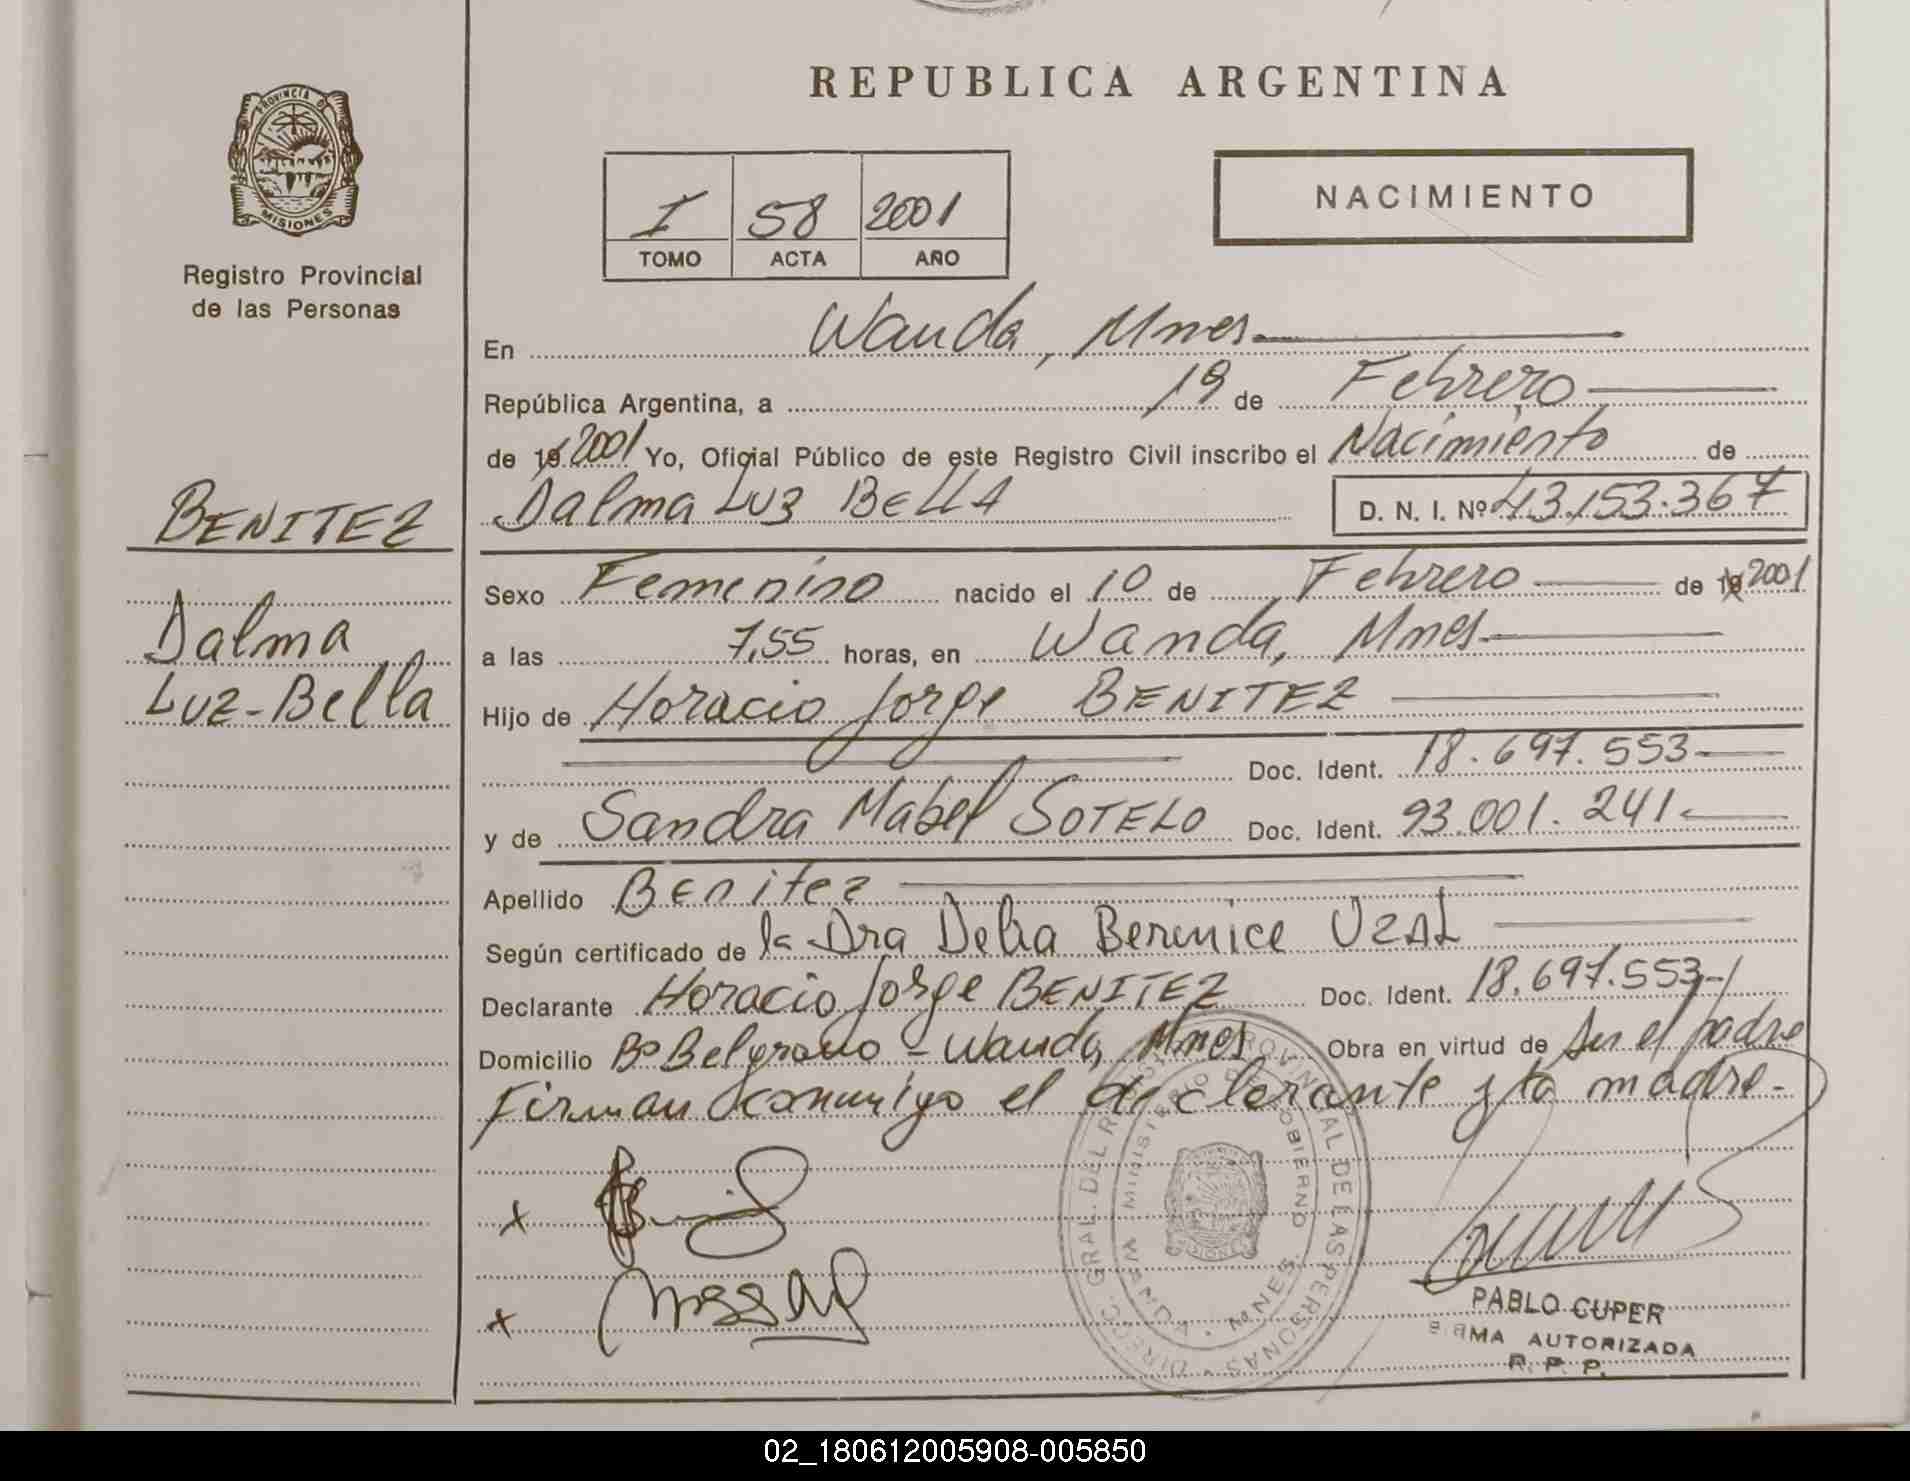 PROVINCIA DE
MISIONES
Registro Provincial
de las Personas
BENITEZ
Dalma
Luz-Bella
REPUBLICA ARGENTINA
I 58 2001
TOMO ACTA AÑO
NACIMIENTO
En Wanda, Mnes
República Argentina, a 19 de Febrero
de 19 2001 Yo, Oficial Público de este Registro Civil inscribo el Nacimiento de
Dalma Luz BELLA D. N. I. Nº 43.153.367
Sexo Femenino nacido el 10 de Febrero de 19 2001
a las 7,55 horas, en Wanda, Mnes
Hijo de Horacio Jorge BENITEZ
Doc. Ident. 18.697.553
y de Sandra Mabel SOTELO Doc. Ident. 93.001.241
Apellido Benitez
Según certificado de la Dra Delia Berenice UZAL
Declarante Horacio Jorge BENITEZ Doc. Ident. 18.697.553
Domicilio Bº Belgrano - Wanda, Mnes Obra en virtud de Ser el padre
Firman conmigo el declarante y la madre.-
DIREC. GRAL. DEL REGISTRO PROVINCIAL DE LAS PERSONAS
MINISTERIO DE GOBIERNO
WANDA - MNES.
x
x
PABLO CUPER
FIRMA AUTORIZADA
R. P. P.
02_180612005908-005850